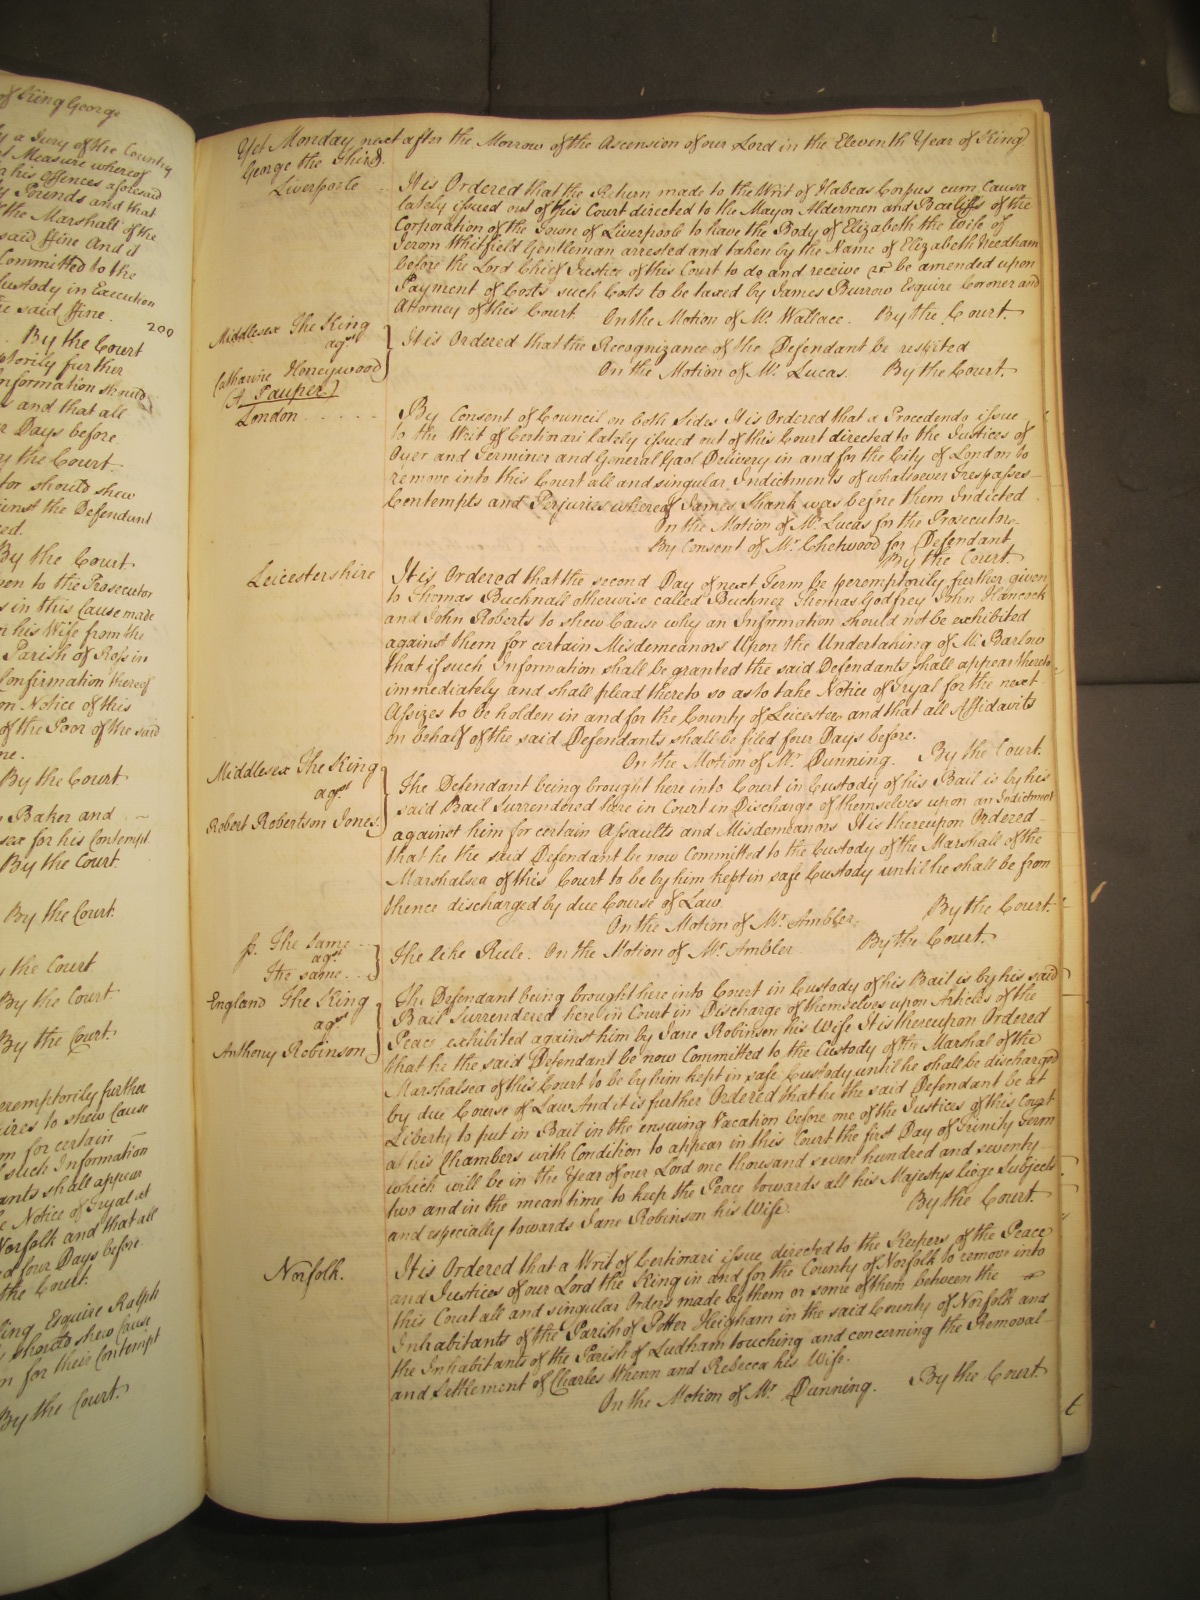 of King George
by a Jury of the Country
Measure whereof
his offences aforesaid
Pounds and that
the Marshall of the
said ffine And it
Committed to the
Custody in Execution
said ffine. 200
By the Court
peremptorily further
Information should
and that all
Days before.
By the Court
should shew
against the Defendant
By the Court
given to the Prosecutor
in this Cause made
his Wife from the
Parish of Ross in
Confirmation thereof
on Notice of this
of the Poor of the said
By the Court
Baker and
for his Contempt.
By the Court
By the Court.
the Court
By the Court
By the Court.
peremptorily further
to shew Cause
for certain
such Information
shall appear
Notice of Tryal at
Norfolk and that all
four Days before.
the Court.
Esquire Ralph
should shew Cause
for their Contempt
By the Court.
Yet Monday next after the Morrow of the Ascension of our Lord in the Eleventh Year of King
George the Third.
Liverpoole
It is Ordered that the Return made to the Writ of Habeas Corpus cum Causa
lately issued out of this Court directed to the Mayor Aldermen and Bailiffs of the
Corporation of the Town of Liverpoole to have the Body of Elizabeth the Wife of
Jerom Whitfield Gentleman arrested and taken by the Name of Elizabeth Needham
before the Lord Chief Justice of this Court to do and receive &c be amended upon
Payment of Costs such Costs to be taxed by James Burrow Esquire Coroner and
Attorney of this Court On the Motion of Mr. Wallace. By the Court.
Middlesex The King
agst
Catharine Honeywood
(A Pauper)
It is Ordered that the Recognizance of the Defendant be respited
On the Motion of Mr. Lucas. By the Court.
London
By Consent of Council on both Sides It is Ordered that a Procedendo issue
to the Writ of Certiorari lately issued out of this Court directed to the Justices of
Oyer and Terminer and General Gaol Delivery in and for the City of London to
remove into this Court all and singular Indictments of whatsoever Trespasses
Contempts and Perjuries whereof James Shank was before them Indicted
On the Motion of Mr. Lucas for the Prosecutors.
By Consent of Mr. Chetwood for Defendant
By the Court.
Leicestershire
It is Ordered that the second Day of next Term be peremptorily further given
to Thomas Bucknall otherwise called Buckner Thomas Godfrey John Hancock
and John Roberts to shew Cause why an Information should not be exhibited
against them for certain Misdemeanors Upon the Undertaking of Mr. Barlow
that if such Information shall be granted the said Defendants shall appear thereto
immediately and shall plead thereto so as to take Notice of Tryal for the next
Assizes to be holden in and for the County of Leicester and that all Affidavits
on behalf of the said Defendants shall be filed four Days before.
On the Motion of Mr. Dunning. By the Court.
Middlesex The King
agst
Robert Robertson Jones.
The Defendant being brought here into Court in Custody of his Bail is by his
said Bail Surrendered here in Court in Discharge of themselves upon an Indictment
against him for certain Assaults and Misdemeanors It is thereupon Ordered
that he the said Defendant be now Committed to the Custody of the Marshall of the
Marshalsea of this Court to be by him kept in safe Custody until he shall be from
thence discharged by due Course of Law.
On the Motion of Mr. Ambler. By the Court.
The Same
agst
The same
The like Rule. On the Motion of Mr. Ambler By the Court.
England The King
agst
Anthony Robinson
The Defendant being brought here into Court in Custody of his Bail is by his said
Bail Surrendered here in Court in Discharge of themselves upon Articles of the
Peace exhibited against him by Jane Robinson his Wife It is thereupon Ordered
that he the said Defendant be now Committed to the Custody of the Marshal of the
Marshalsea of this Court to be by him kept in safe Custody until he shall be discharged
by due Course of Law And it is further Ordered that he the said Defendant be at
Liberty to put in Bail in the ensuing Vacation before one of the Justices of this Court
at his Chambers with Condition to appear in this Court the first Day of Trinity Term
which will be in the Year of our Lord one thousand seven hundred and seventy
two and in the mean time to keep the Peace towards all his Majestys liege Subjects
and especially towards Jane Robinson his Wife. By the Court.
Norfolk.
It is Ordered that a Writ of Certiorari issue directed to the Keepers of the Peace
and Justices of our Lord the King in and for the County of Norfolk to remove into
this Court all and singular Orders made by them or some of them between the
Inhabitants of the Parish of Potter Heigham in the said County of Norfolk and
the Inhabitants of the Parish of Ludham touching and concerning the Removal
and Settlement of Charles Thenn and Rebecca his Wife.
On the Motion of Mr. Dunning. By the Court.